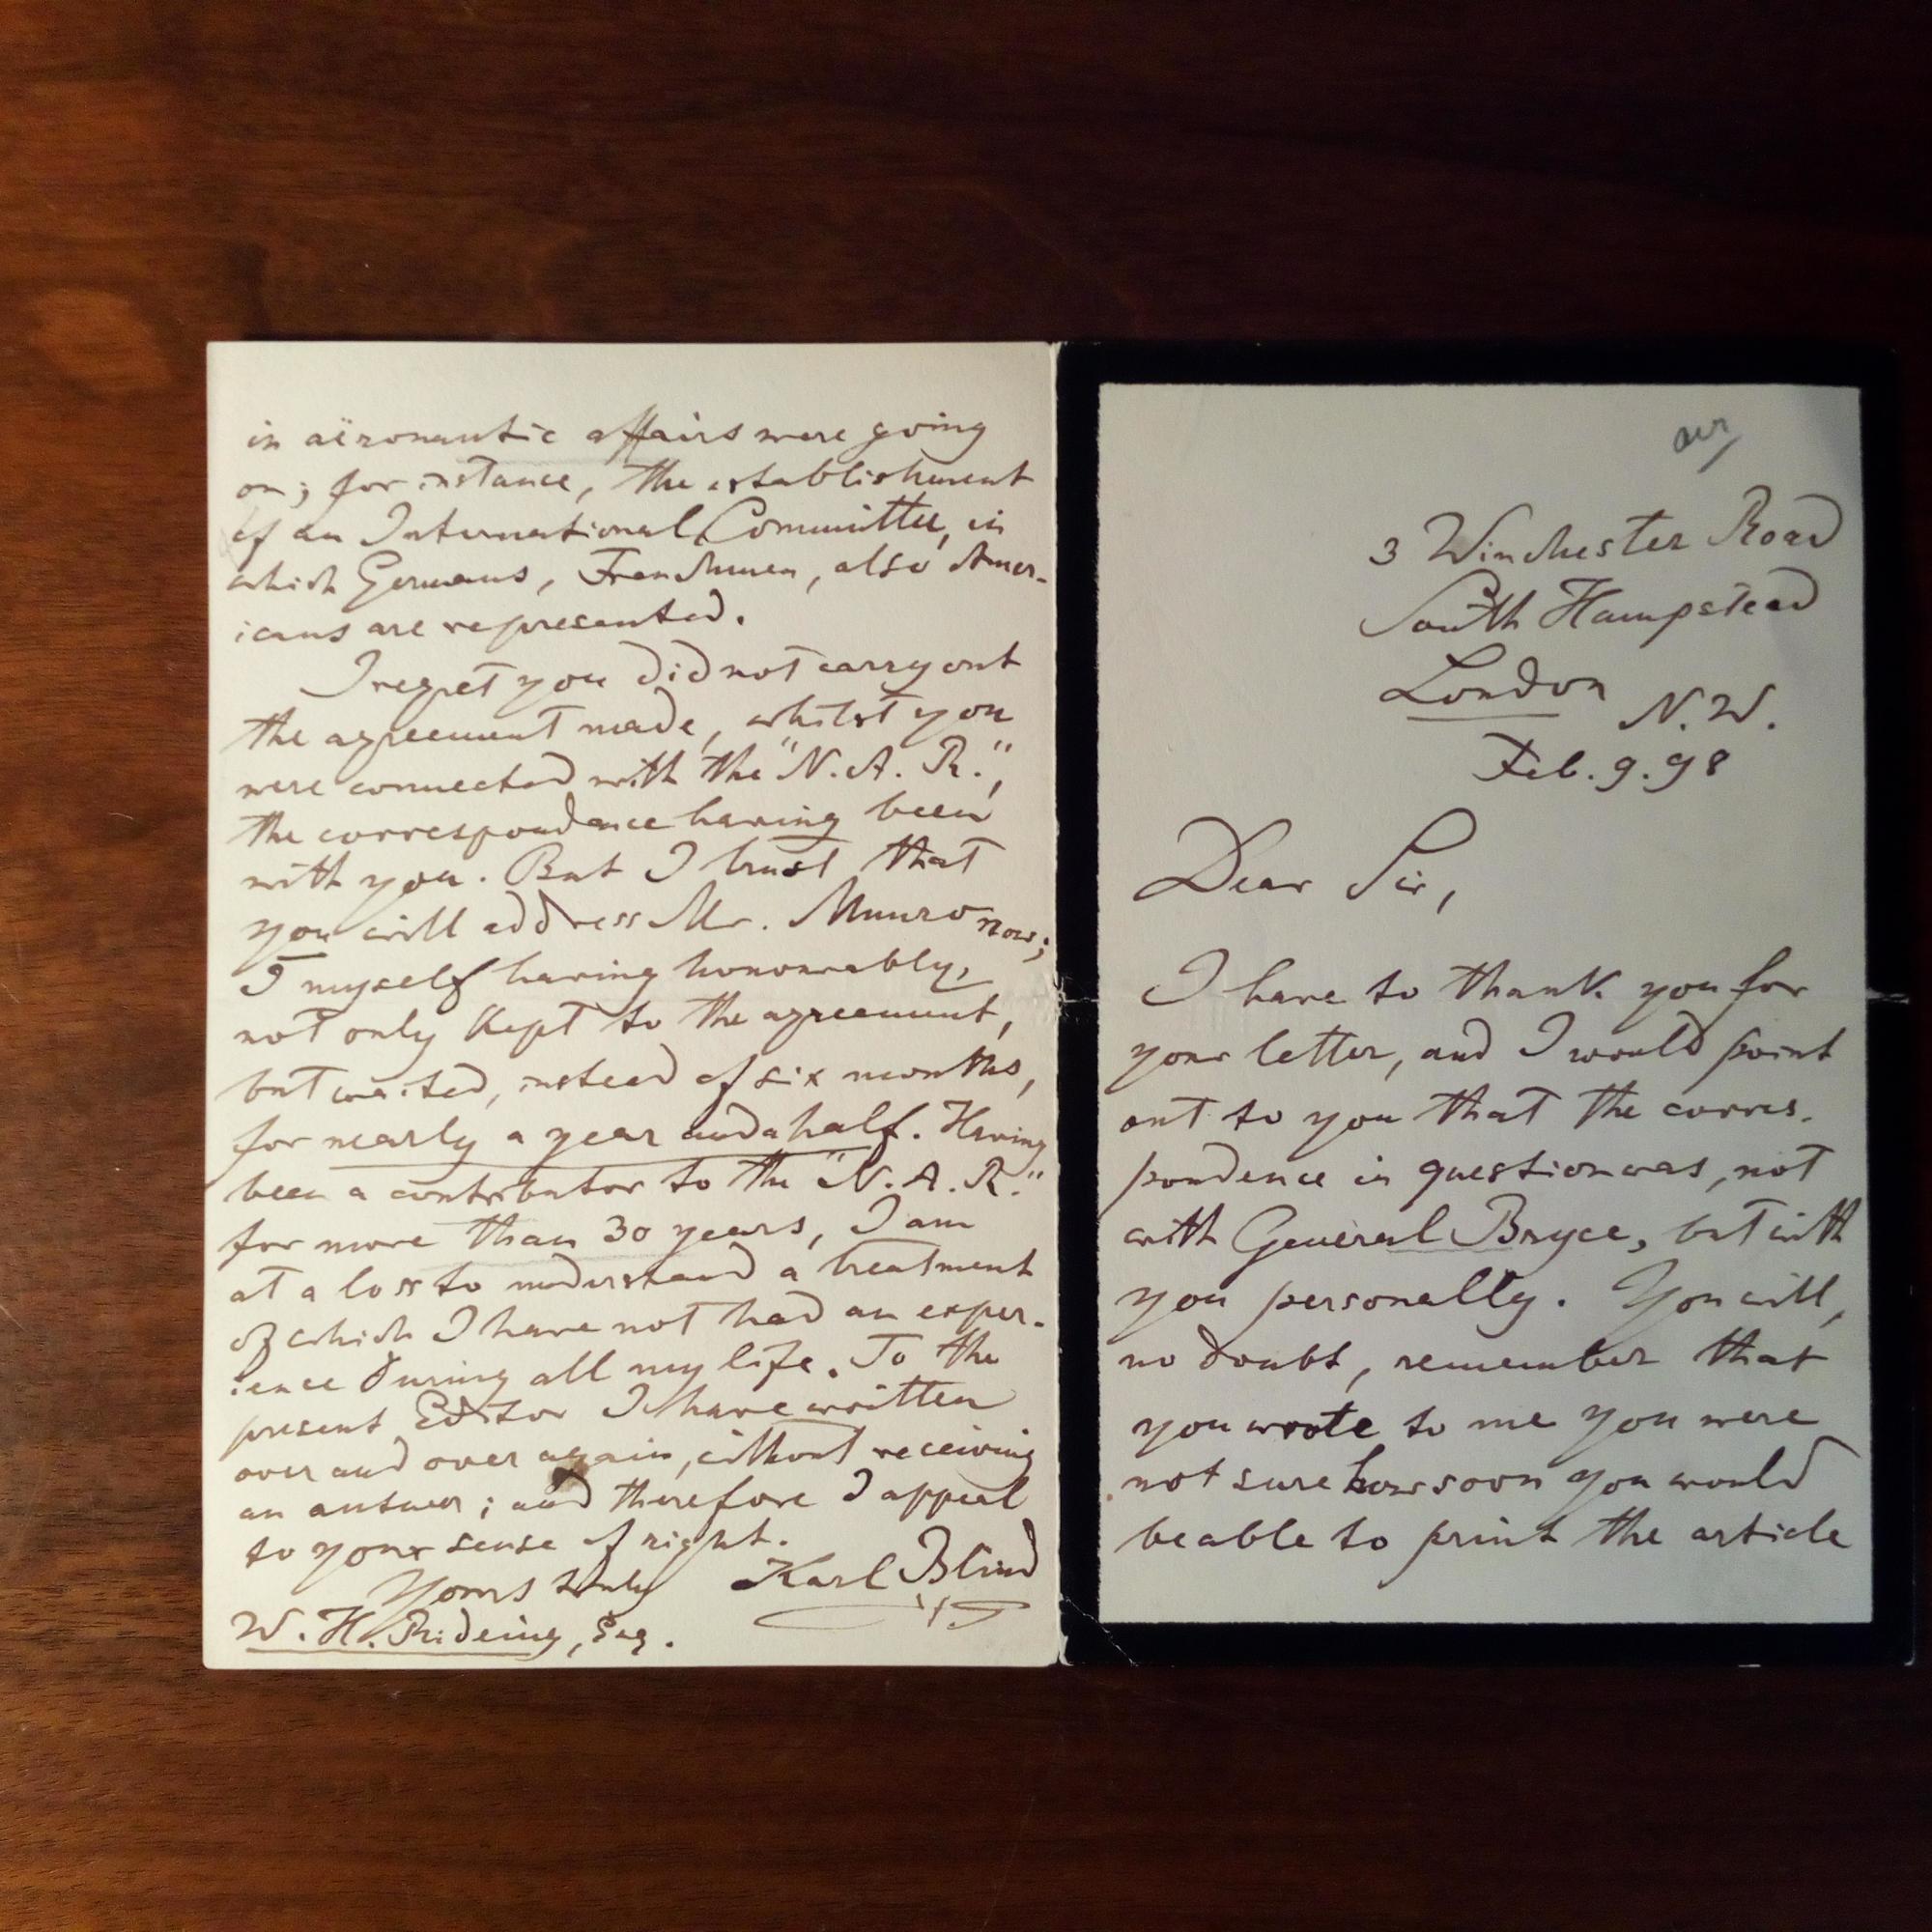 3 Winchester Road
South Hampstead
London N.W.
Feb. 9. 98
Dear Sir,
I have to thank you for
your letter, and I would point
out to you that the corres-
pondence in question was, not
with General Bryce, but with
you personally. You will,
no doubt, remember that
you wrote to me you were
not sure how soon you would
be able to print the article
in aëronautic affairs were going
on; for instance, the establishment
of an International Committee, in
which Germans, Frenchmen, also Amer-
icans are represented.
I regret you did not carry out
the agreement made, whilst you
were connected with the "N. A. R.",
the correspondence having been
with you. But I trust that
you will address Mr. Munro now;
I myself having honourably,
not only kept to the agreement,
but waited, instead of six months,
for nearly a year and a half. Having
been a contributor to the "N. A. R."
for more than 30 years, I am
at a loss to understand a treatment
of which I have not had an exper-
ience during all my life. To the
present Editor I have written
over and over again, without receiving
an answer; and therefore I appeal
to your sense of right.
Yours truly Karl Blind
W. H. Rideing, Esq.